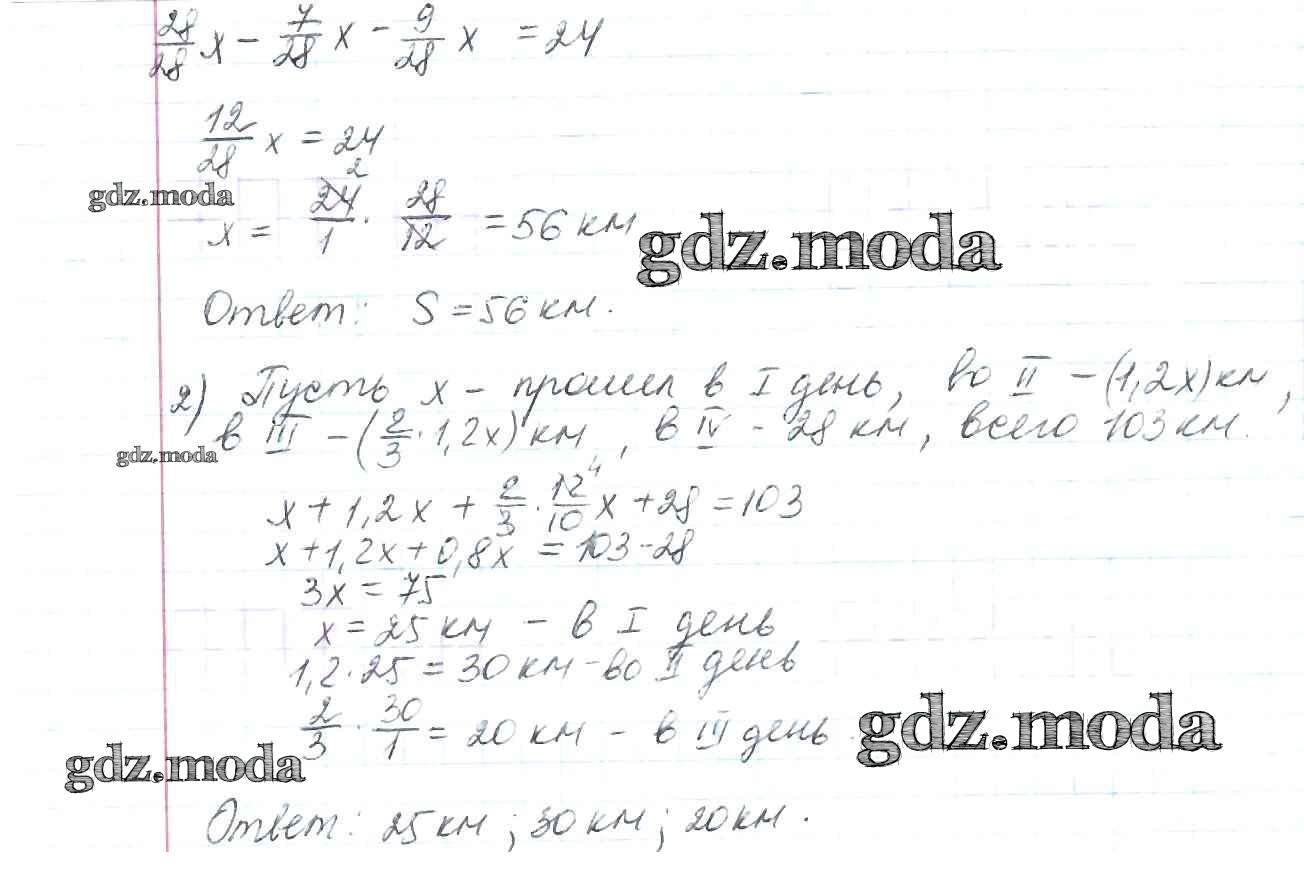 28/28 x - 7/28 x - 9/28 x = 24
12/28 x = 24
gdz.moda
x = 24/1 · 28/12 = 56 км
2
gdz.moda
Ответ: S = 56 км.
2) Пусть x - прошел в I день, во II - (1,2x) км,
в III - (2/3 · 1,2x) км, в IV - 28 км, всего 103 км.
gdz.moda
x + 1,2x + 2/3 · 12/10 x + 28 = 103
4
x + 1,2x + 0,8x = 103 - 28
3x = 75
x = 25 км - в I день
1,2 · 25 = 30 км - во II день
2/3 · 30/1 = 20 км - в III день
gdz.moda
gdz.moda
Ответ: 25 км; 30 км; 20 км.